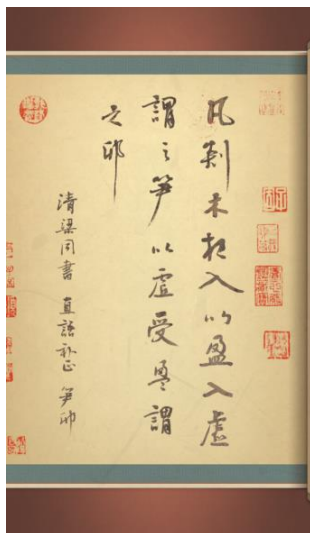 凡剡木相入以盈入虛
謂之笋以虛受盈謂
之卯
清梁同書 直語補正 笋卯